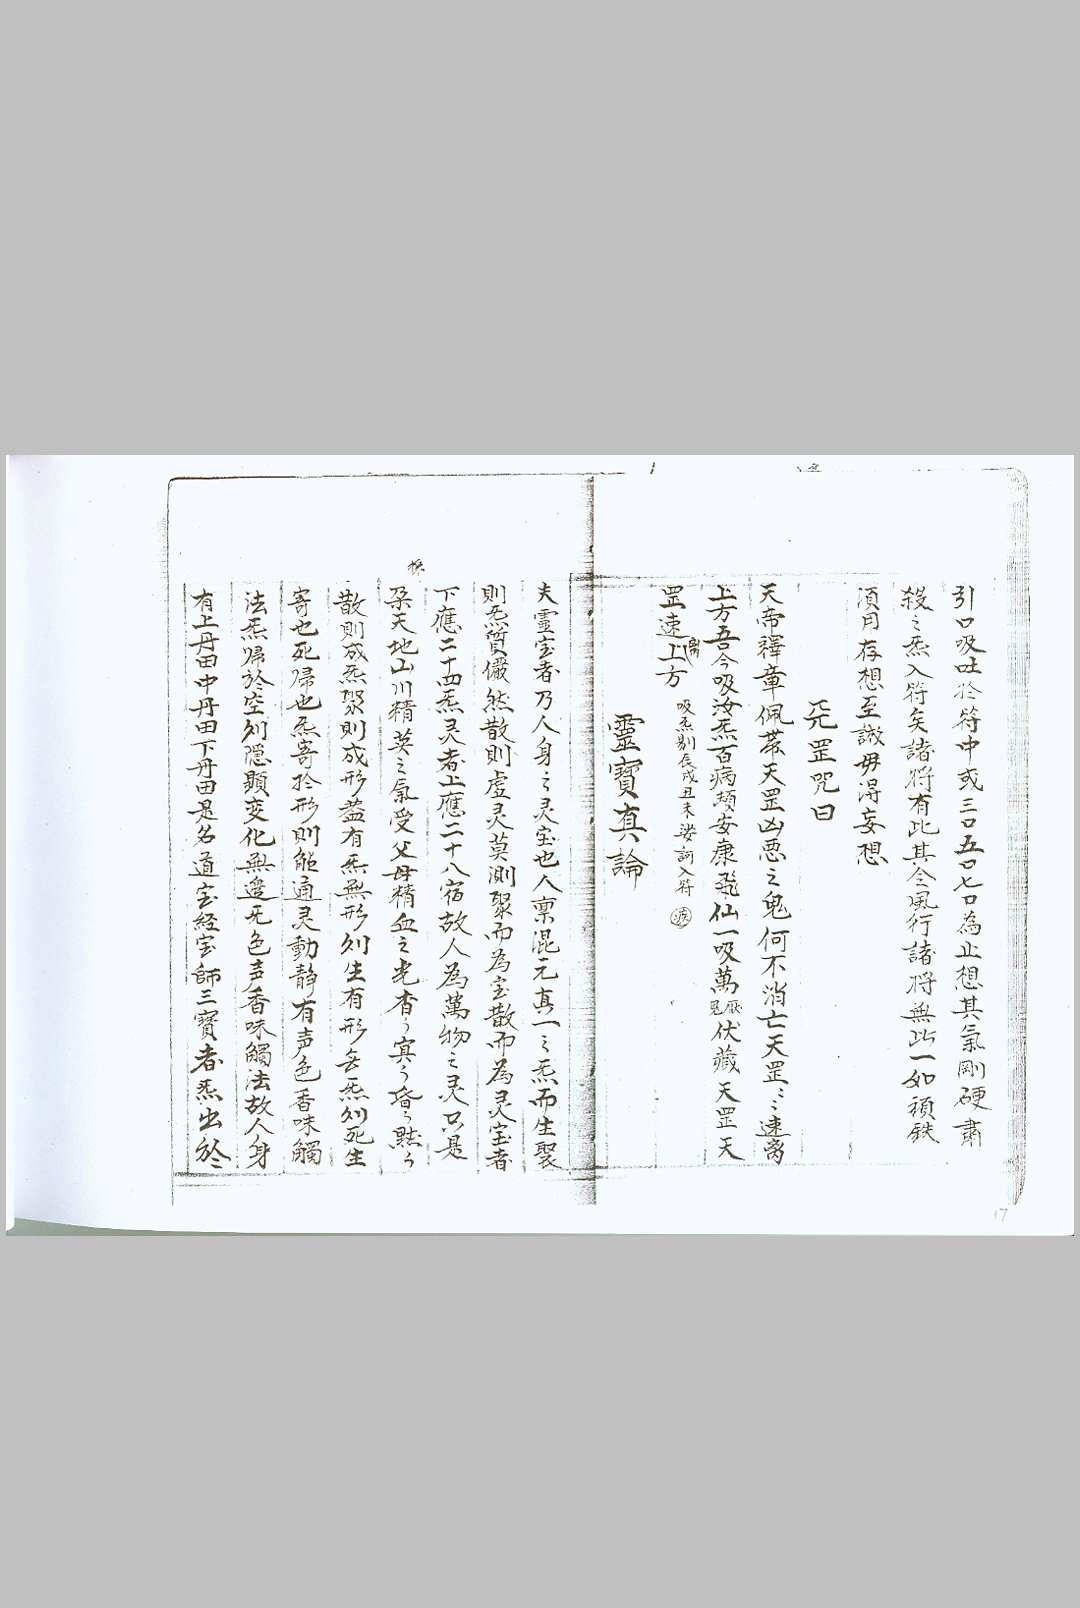 引口吸吐於符中或三口五口七口為止想其氣剛硬肅
殺之炁入符矣諸將有此其令風行諸將無此一如頑鉄
須用存想至誠毋得妄想
兲罡咒曰
天帝釋章佩帯天罡凶悪之鬼何不消亡天罡〻〻速离
上方吾今吸汝炁百病頓安康飛仙一吸萬鬼伏藏天罡天
罡速離上方
吸炁剔辰戌丑未娑訶入符
靈寶真論
夫靈宝者乃人身之灵宝也人禀混元真一之炁而生聚
則炁質儼然散則虚灵莫測聚而為宝散而為灵宝者
下應二十四炁灵者上應二十八宿故人為萬物之灵只是
採
朶天地山川精英之氣受父母精血之光杳〻寘〻昏〻黙〻
散則成炁聚則成形葢有炁無形则生有形無炁则死生
寄也死帰也炁寄於形則能通灵動静有声色香味觸
法炁帰於空则隱顯变化無邉无色声香味觸法故人身
有上丹田中丹田下丹田是名道宝経宝師三寶者炁出於
17